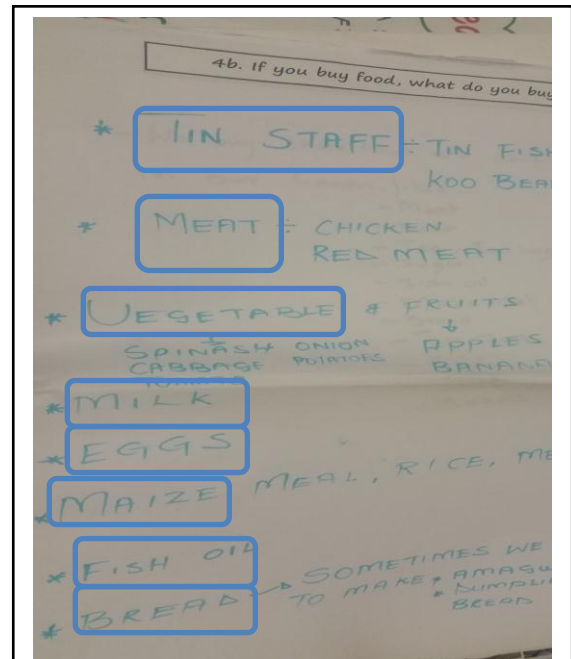 4b. If you buy food, what do you buy
* TIN STAFF ÷ TIN FISH
KOO BEA
* MEAT ÷ CHICKEN
RED MEAT
* VEGETABLE & FRUITS
SPINASH ONION APPLES
CABBAGE POTATOES BANANA
* MILK
* EGGS
* MAIZE MEAL, RICE, ME
* FISH OIL
* BREAD → SOMETIMES WE
TO MAKE * AMAGW
* DUMPLI
BREAD